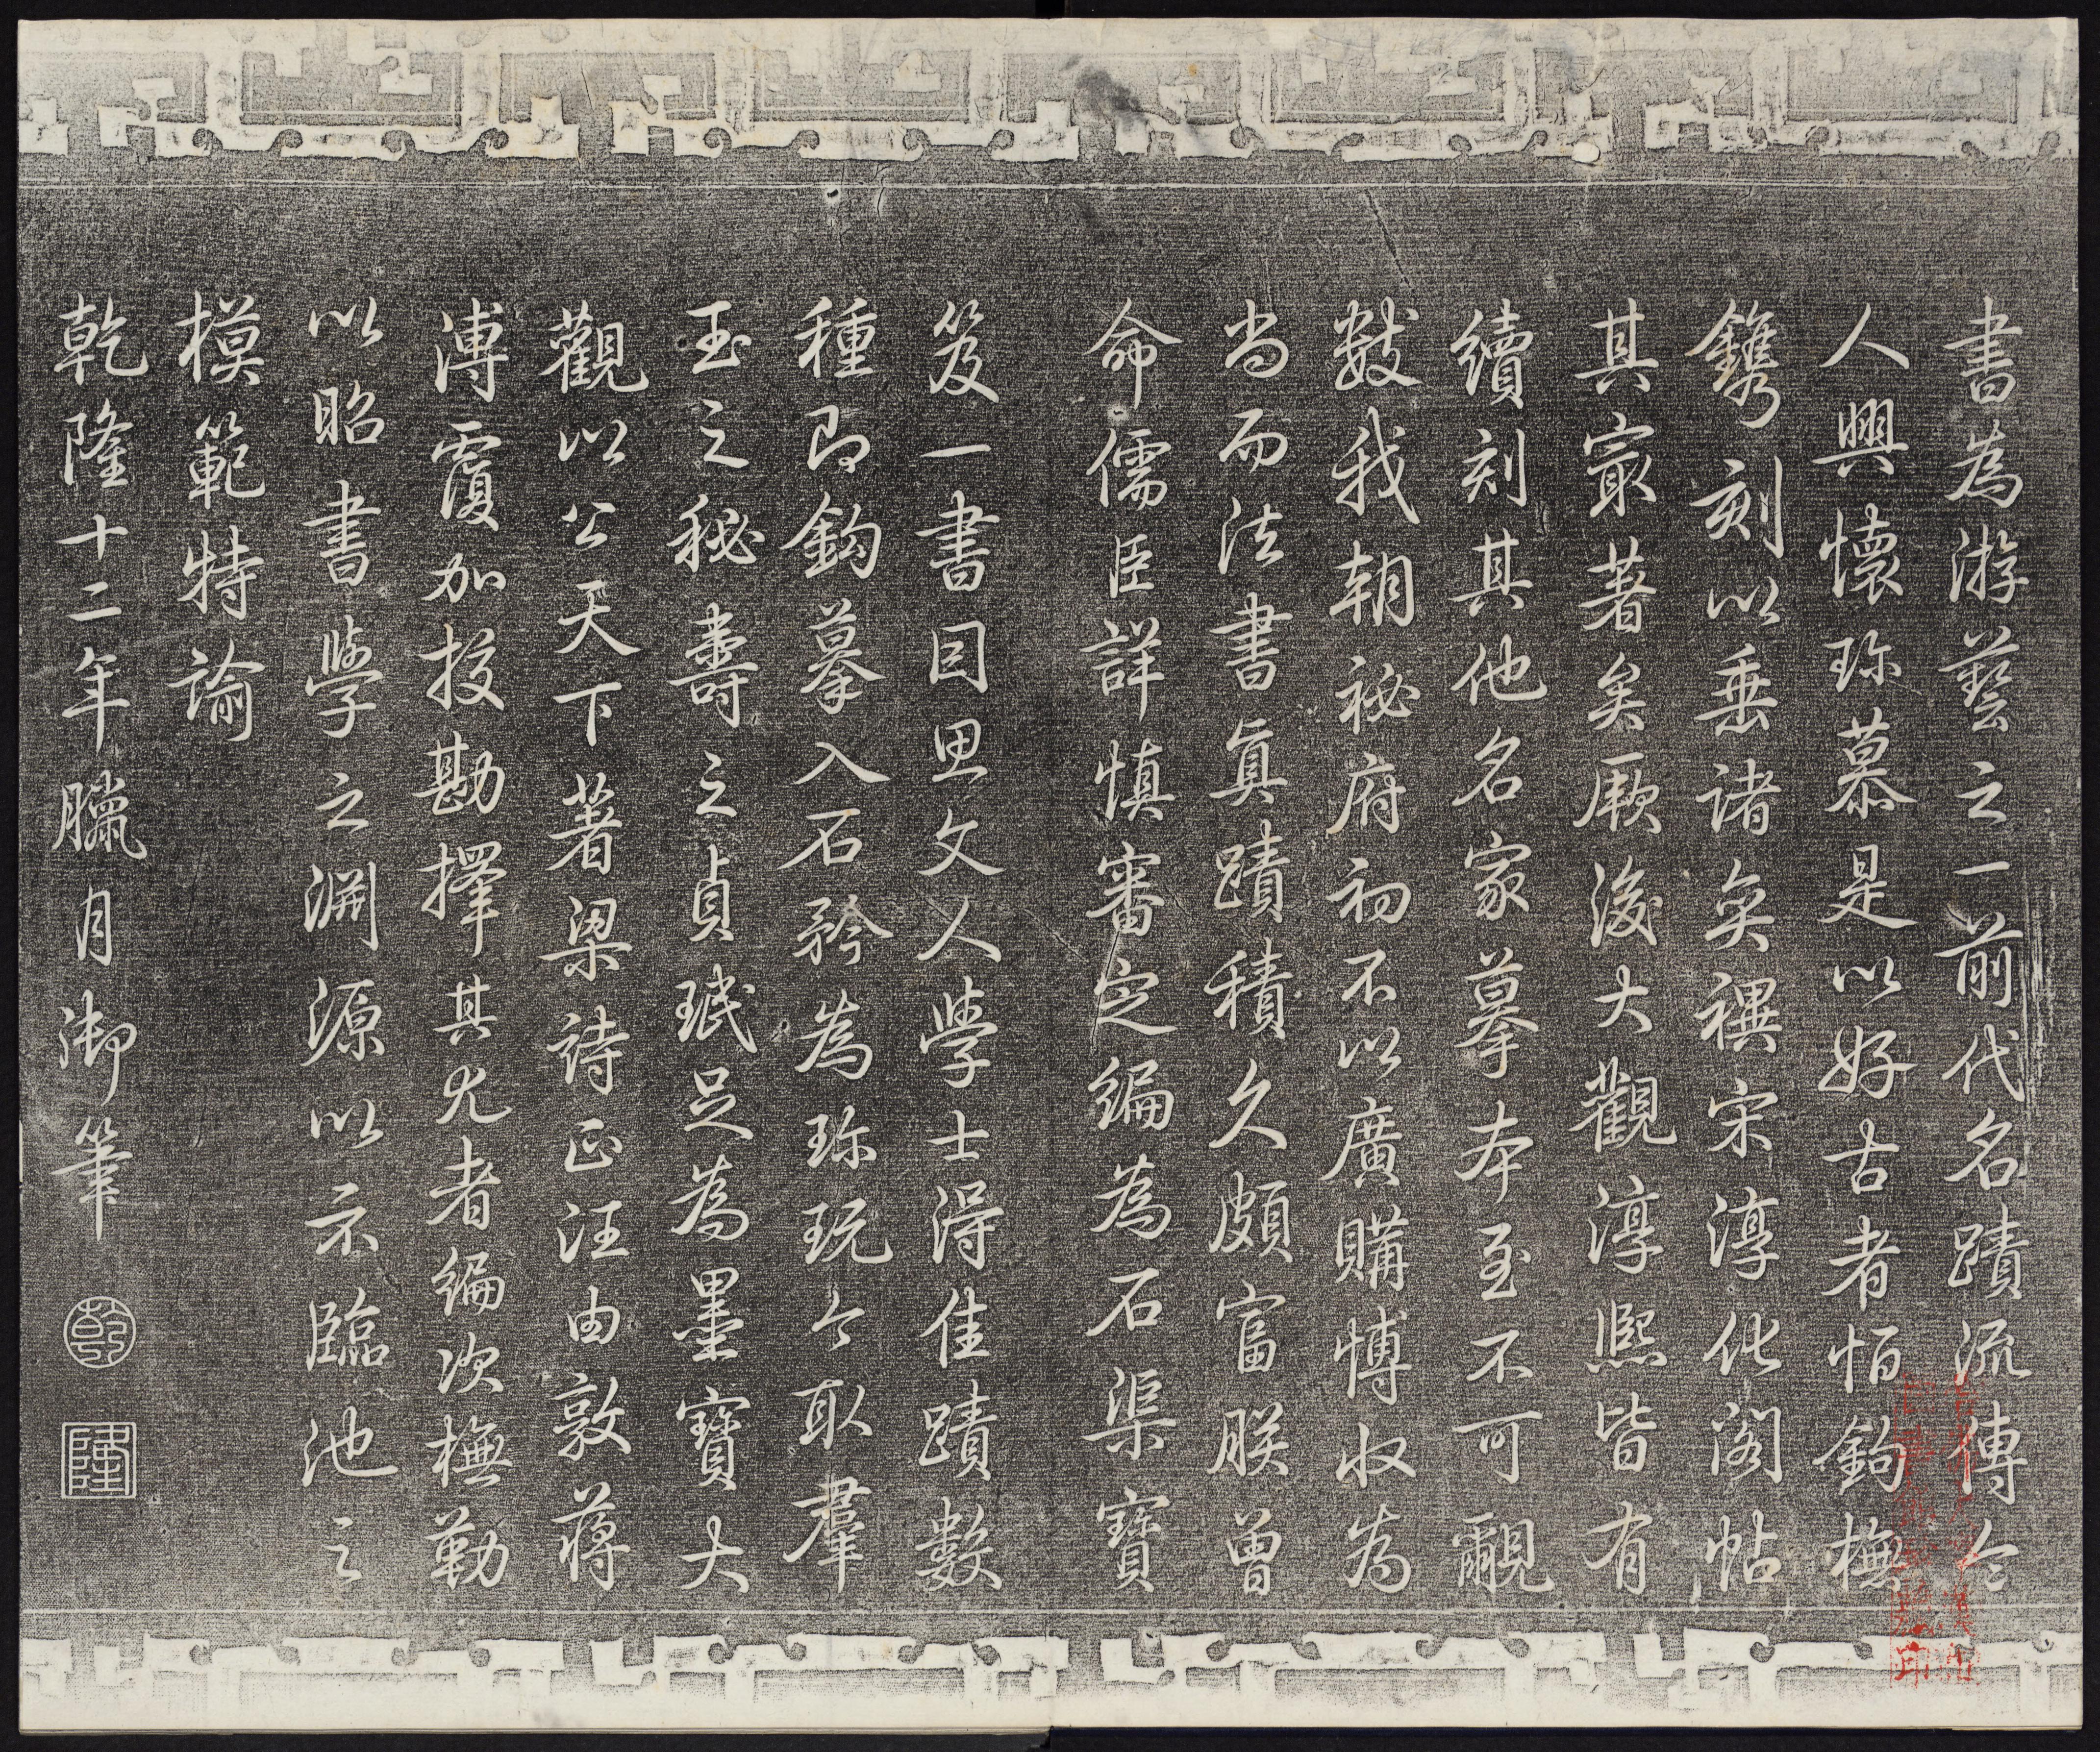 書為游藝之一前代名蹟流傳令
人興懷珍慕是以好古者恆鉤橅
鐫刻以垂諸奕禩宋淳化閣帖
其寂著矣厥後大觀淳熙皆有
續刻其他名家摹本至不可覼
數我朝祕府初不以廣購博收為
尚而法書真蹟積久頗富朕曾
命儒臣詳慎審定編為石渠寶
笈一書因思文人學士得佳蹟數
種即鉤摹入石矜為珍玩今取羣
玉之秘壽之貞珉足為墨寶大
觀以公天下著梁詩正汪由敦蔣
溥覆加挍勘擇其尤者編次橅勒
以昭書學之淵源以示臨池之
模範特諭
乾隆十二年臘月御筆
乾
隆